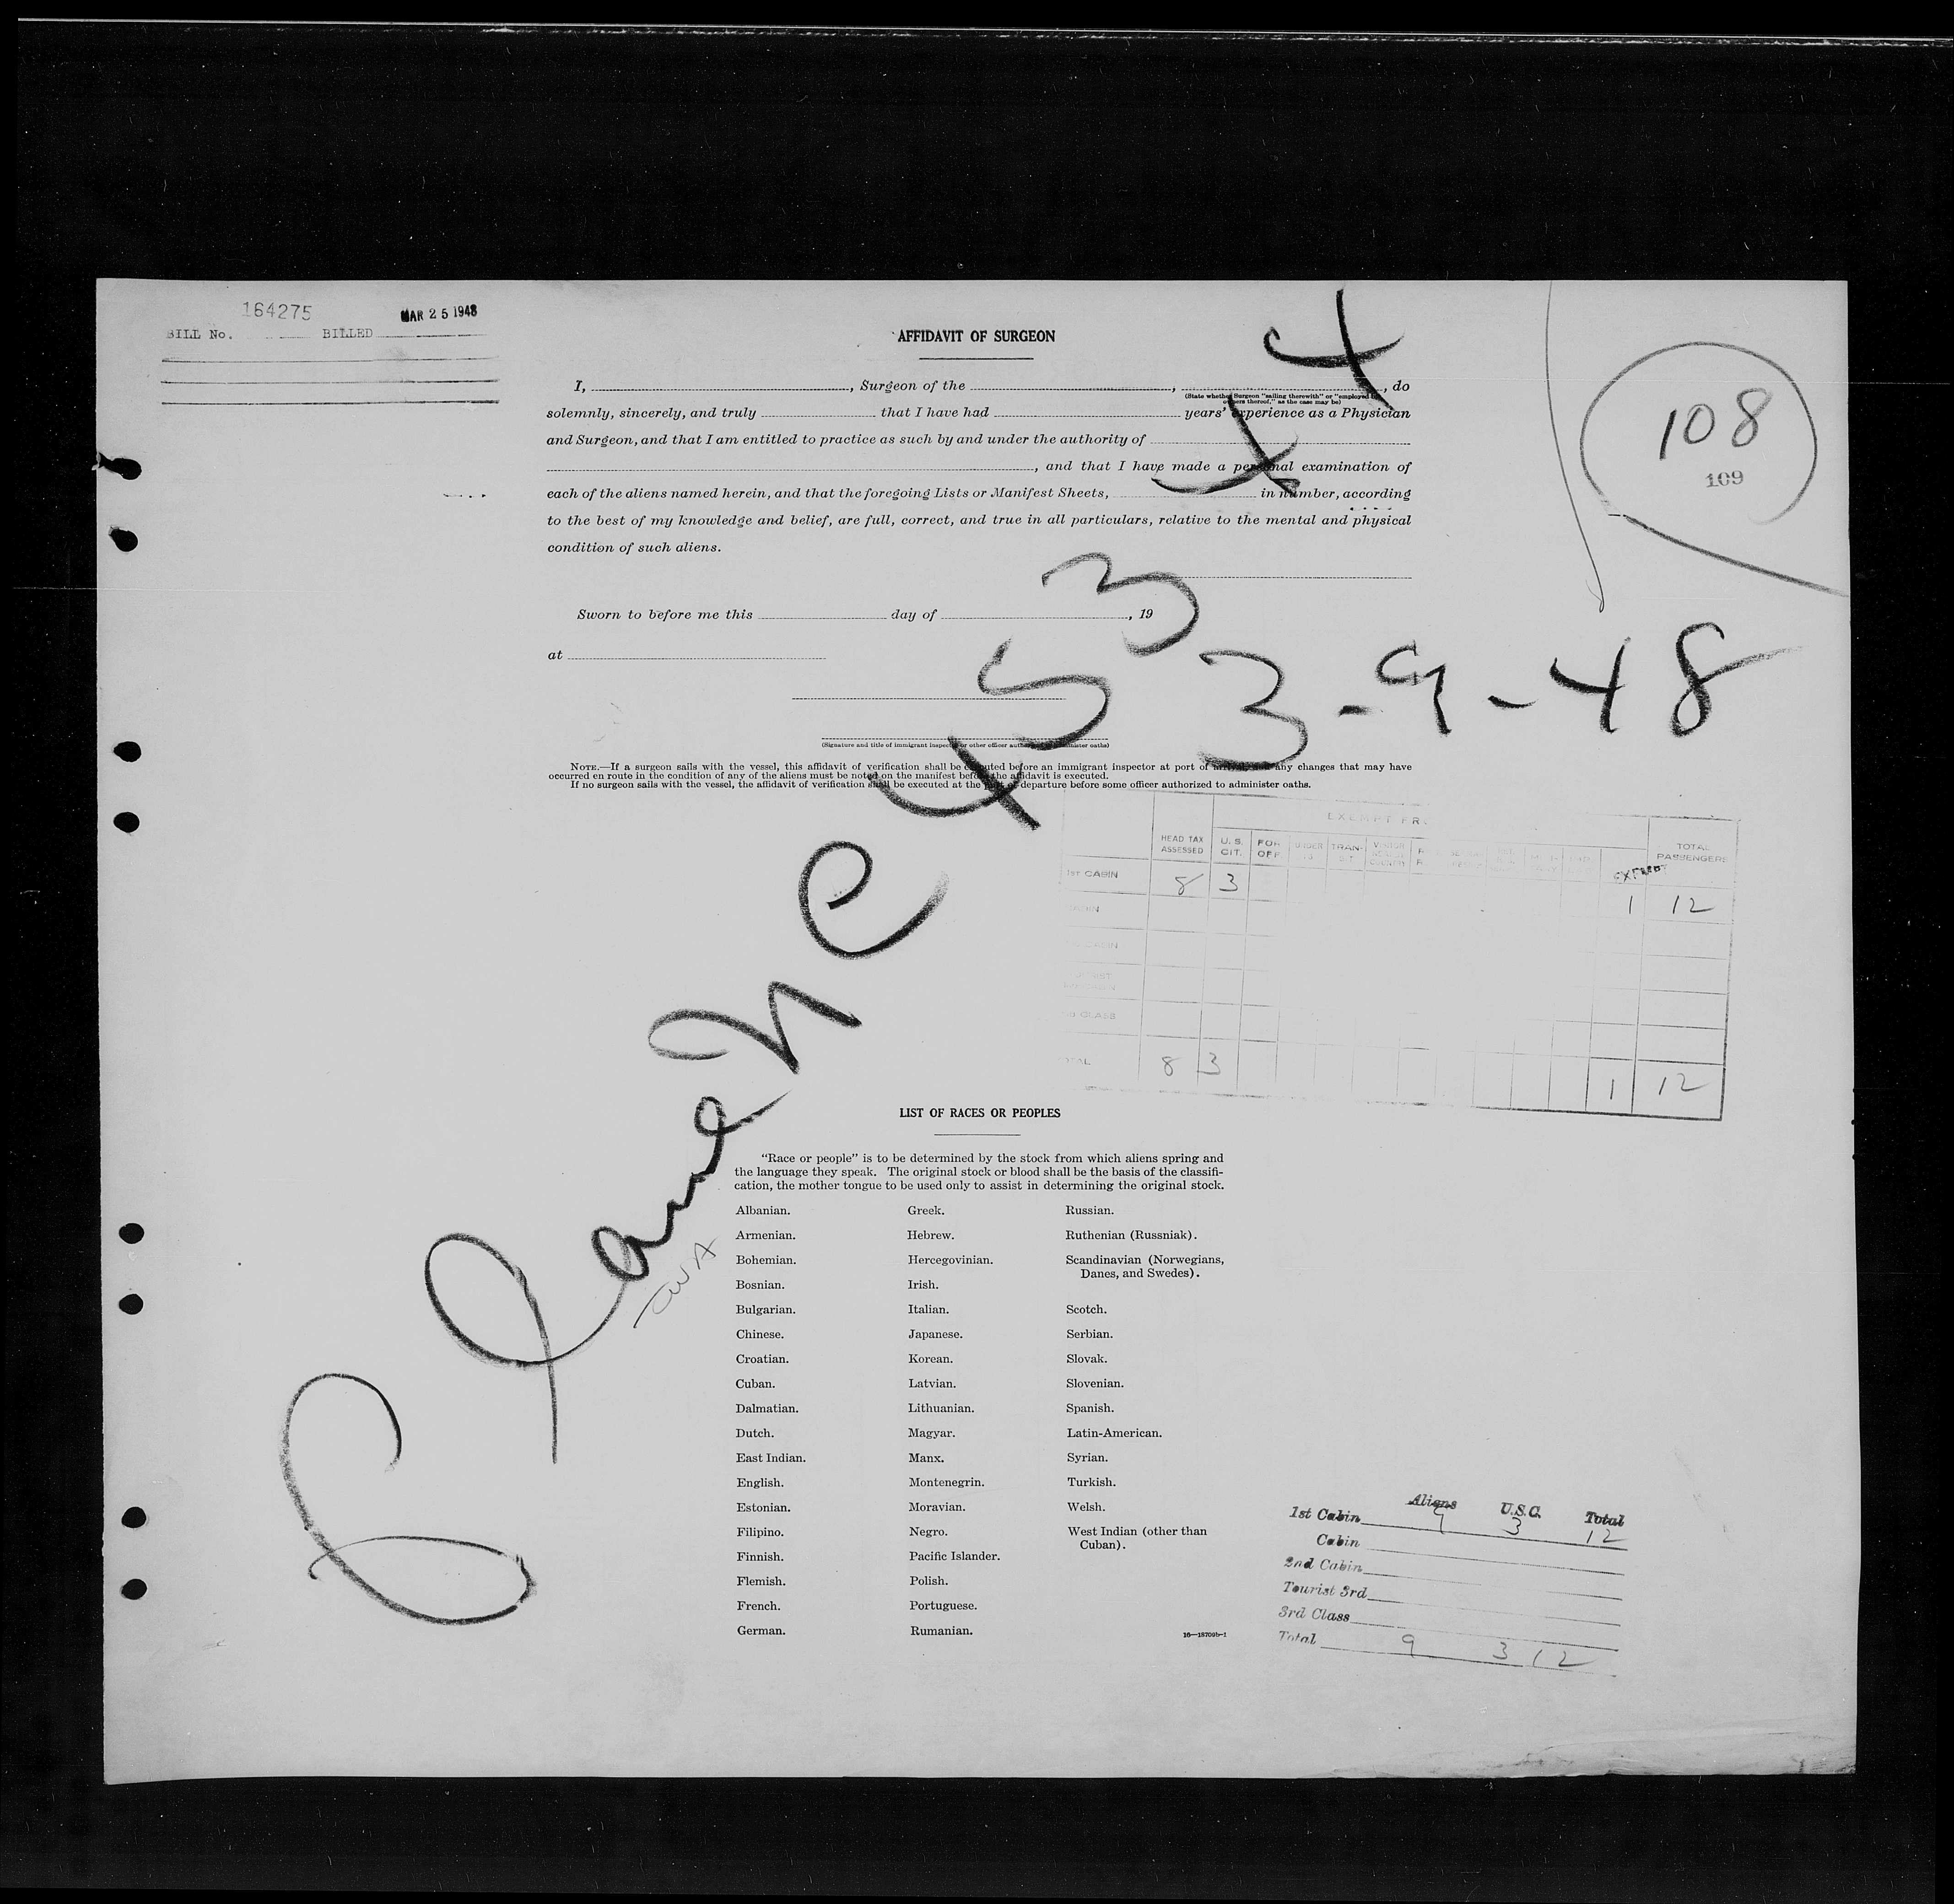 164275
MAR 25 1948
BILL No. BILLED
AFFIDAVIT OF SURGEON
I, , Surgeon of the , , do
(State whether Surgeon "sailing therewith" or "employed by
owners thereof," as the case may be)
solemnly, sincerely, and truly that I have had years' experience as a Physician
and Surgeon, and that I am entitled to practice as such by and under the authority of
, and that I have made a personal examination of
each of the aliens named herein, and that the foregoing Lists or Manifest Sheets, in number, according
to the best of my knowledge and belief, are full, correct, and true in all particulars, relative to the mental and physical
condition of such aliens.
108
109
Sworn to before me this day of , 19
at
3-9-48
Plane NC 45344
(Signature and title of immigrant inspector or other officer authorized to administer oaths)
NOTE.—If a surgeon sails with the vessel, this affidavit of verification shall be executed before an immigrant inspector at port of arrival, and any changes that may have
occurred en route in the condition of any of the aliens must be noted on the manifest before the affidavit is executed.
If no surgeon sails with the vessel, the affidavit of verification shall be executed at the port of departure before some officer authorized to administer oaths.
EXEMPT FR
HEAD TAX ASSESSED U. S. CIT. FOR OFF UNDER TRAN- SIT TOTAL PASSENGERS
1ST CABIN 8 3
1 12
CABIN
CLASS
TOTAL 8 3 1 12
LIST OF RACES OR PEOPLES
"Race or people" is to be determined by the stock from which aliens spring and
the language they speak. The original stock or blood shall be the basis of the classifi-
cation, the mother tongue to be used only to assist in determining the original stock.
Albanian. Greek. Russian.
Armenian. Hebrew. Ruthenian (Russniak).
Bohemian. Hercegovinian. Scandinavian (Norwegians,
Danes, and Swedes).
Bosnian. Irish.
Bulgarian. Italian. Scotch.
Chinese. Japanese. Serbian.
Croatian. Korean. Slovak.
Cuban. Latvian. Slovenian.
Dalmatian. Lithuanian. Spanish.
Dutch. Magyar. Latin-American.
East Indian. Manx. Syrian.
English. Montenegrin. Turkish.
Estonian. Moravian. Welsh.
Filipino. Negro. West Indian (other than
Cuban).
Finnish. Pacific Islander.
Flemish. Polish.
French. Portuguese.
German. Rumanian.
16—18709b-1
Aliens U.S.C. Total
1st Cabin 9 3 12
Cabin
2nd Cabin
Tourist 3rd
3rd Class
Total 9 3 12